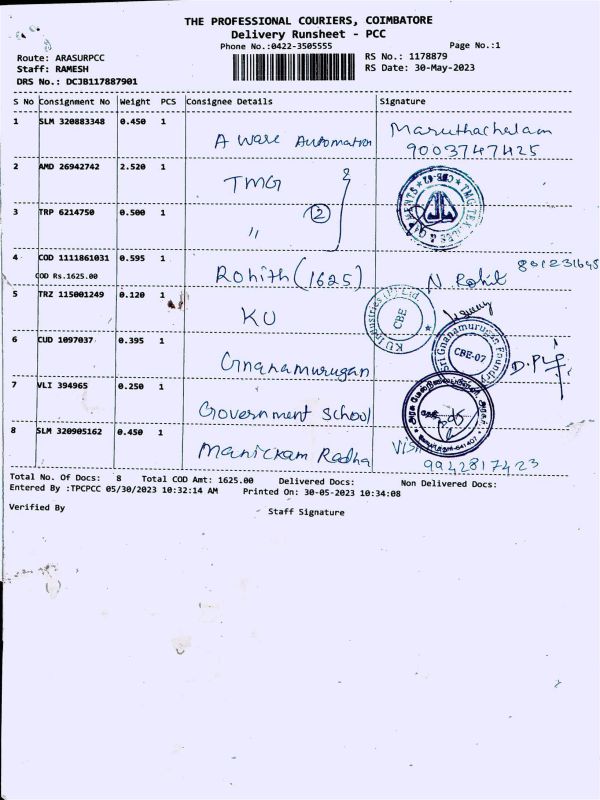 THE PROFESSIONAL COURIERS, COIMBATORE
Delivery Runsheet - PCC
Phone No.:0422-3505555
Page No.:1
Route: ARASURPCC
Staff: RAMESH
DRS No.: DCJB117887901
RS No.: 1178879
RS Date: 30-May-2023
S No Consignment No Weight PCS Consignee Details Signature
1 SLM 320883348 0.450 1 A Ware Automation Maruthachalam
9003747425
2 AMD 26942742 2.520 1 TMG
TMG TEXTILES & GARMENTS
3 TRP 6214750 0.500 1 " 2
4 COD 1111861031 0.595 1 Rohith (1625) N. Rohit
COD Rs.1625.00
5 TRZ 115001249 0.120 1 KU
KU Industries (P) Ltd.
CBE
6 CUD 1097037 0.395 1 Gnanamurugan
Sri Gnanamurugan Foundry
CBE-07
7 VLI 394965 0.250 1 Government School
8 SLM 320905162 0.450 1 Manickam Radha
9942817423
Total No. Of Docs: 8 Total COD Amt: 1625.00 Delivered Docs: Non Delivered Docs:
Entered By :TPCPCC 05/30/2023 10:32:14 AM Printed On: 30-05-2023 10:34:08
Verified By
Staff Signature